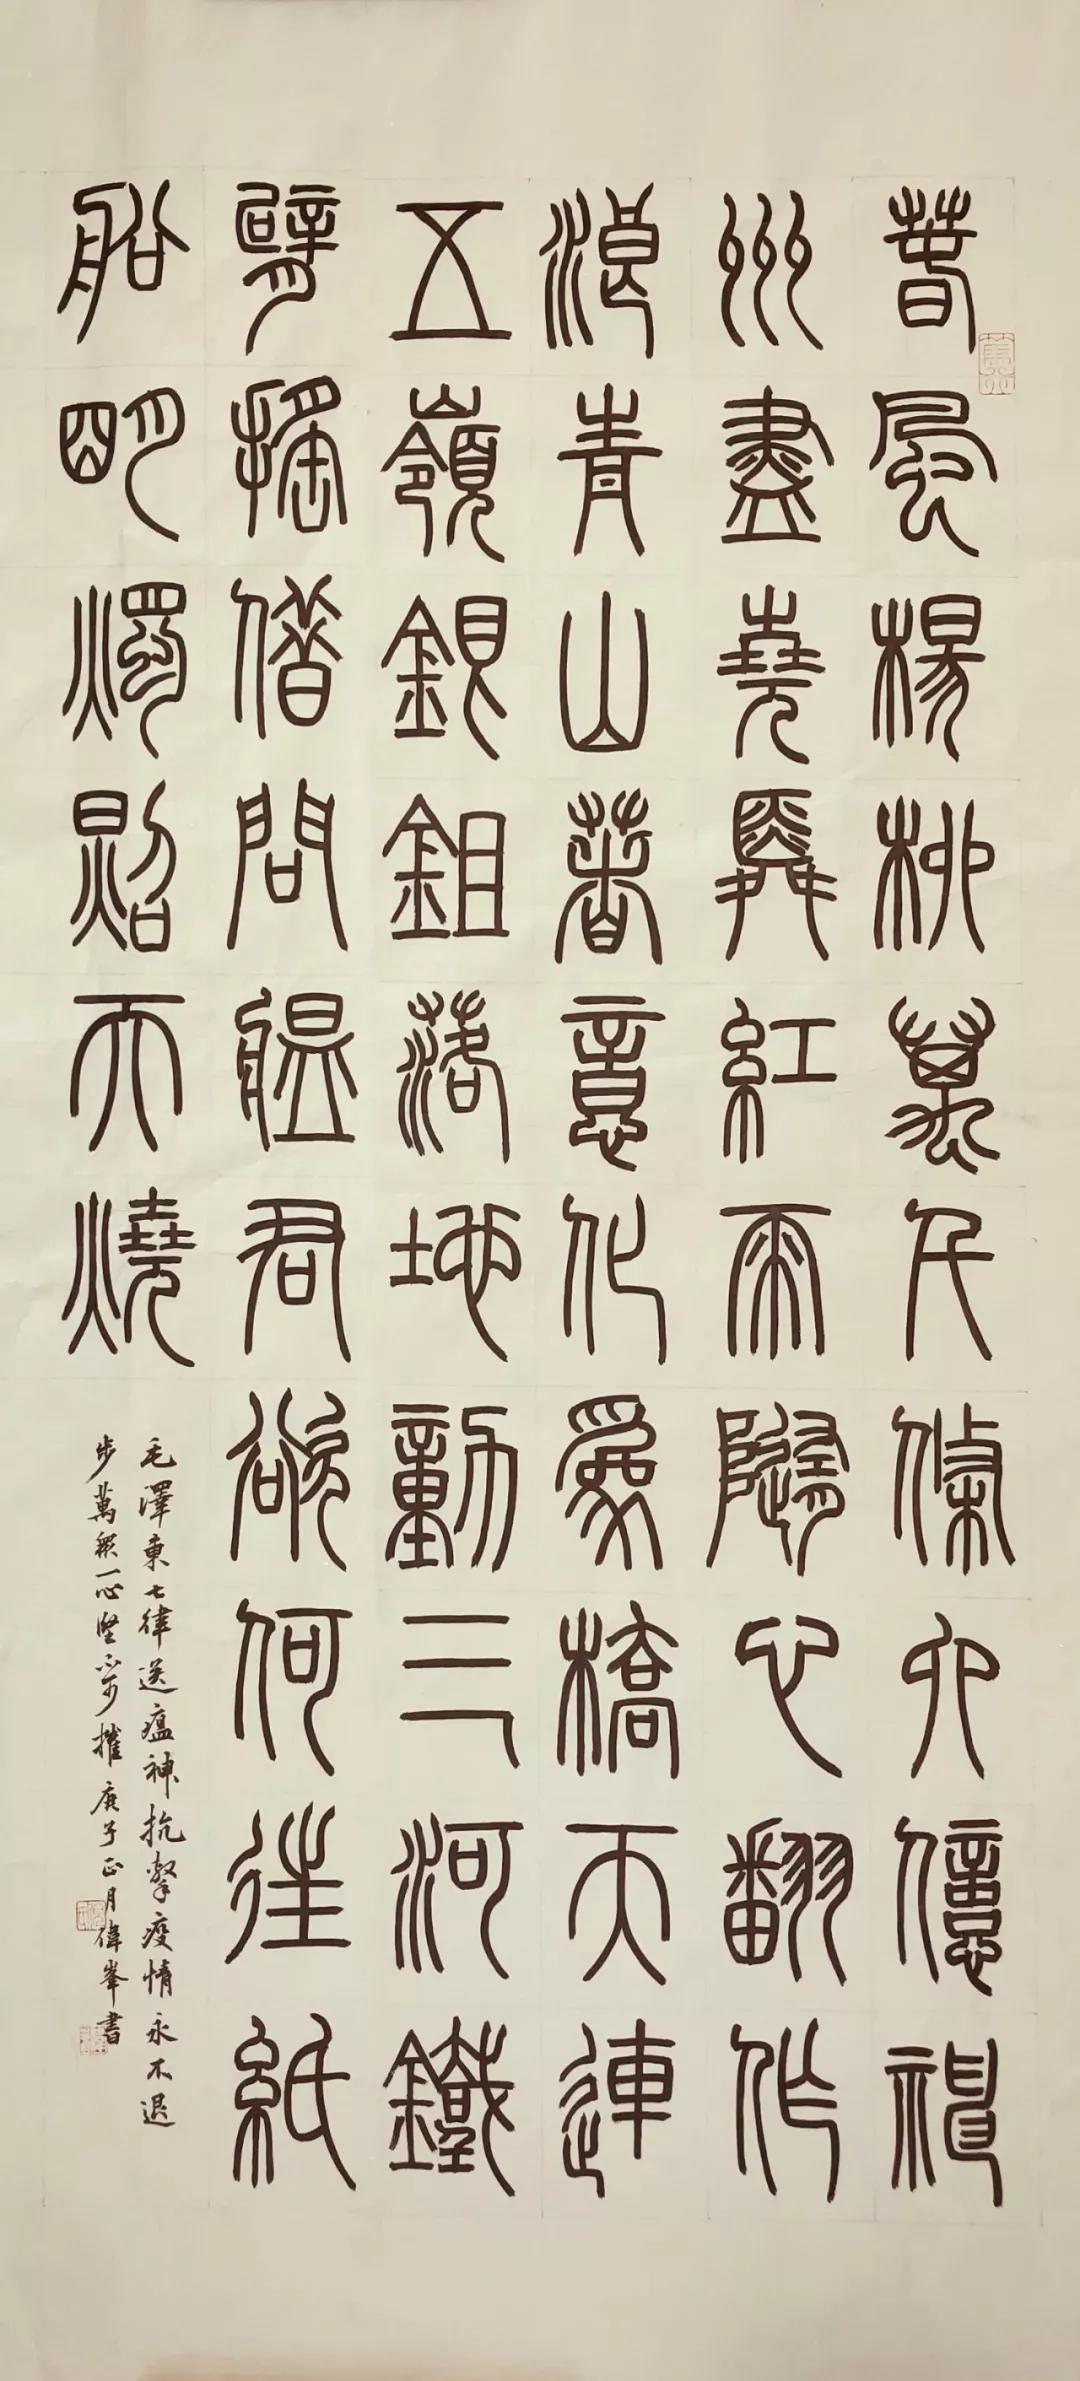 春風楊柳萬千條六億神
州盡堯舜紅雨隨心翻作
浪青山著意化為橋天連
五嶺銀鉏落地動三河鐵
臂搖借問瘟君欲何往紙
船明燭照天燒
毛澤東七律送瘟神抗擊疫情永不退
步萬衆一心堅不可摧庚子正月偉峯書